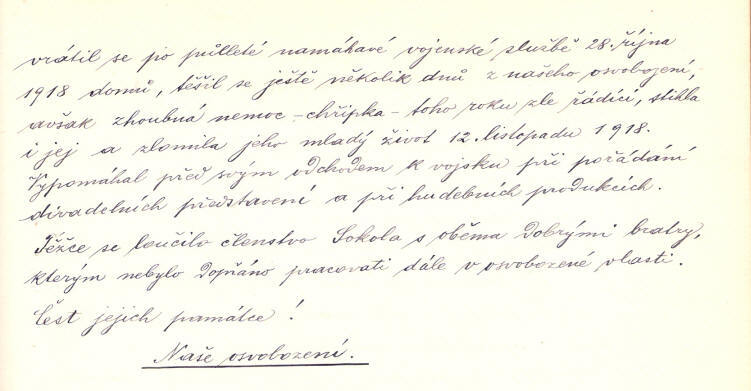 vrátil se po půlleté namáhavé vojenské službě 28. října
1918 domů, těšil se ještě několik dnů z našeho osvobození,
avšak zhoubná nemoc - chřipka - toho roku zle řádící, stihla
i jej a zlomila jeho mladý život 12. listopadu 1918.
Vypomáhal před svým odchodem k vojsku při pořádání
divadelních představení a při hudebních produkcích.
Těžce se loučilo členstvo Sokola s oběma dobrými bratry,
kterým nebylo dopřáno pracovati dále v osvobozené vlasti.
Čest jejich památce!
Naše osvobození.